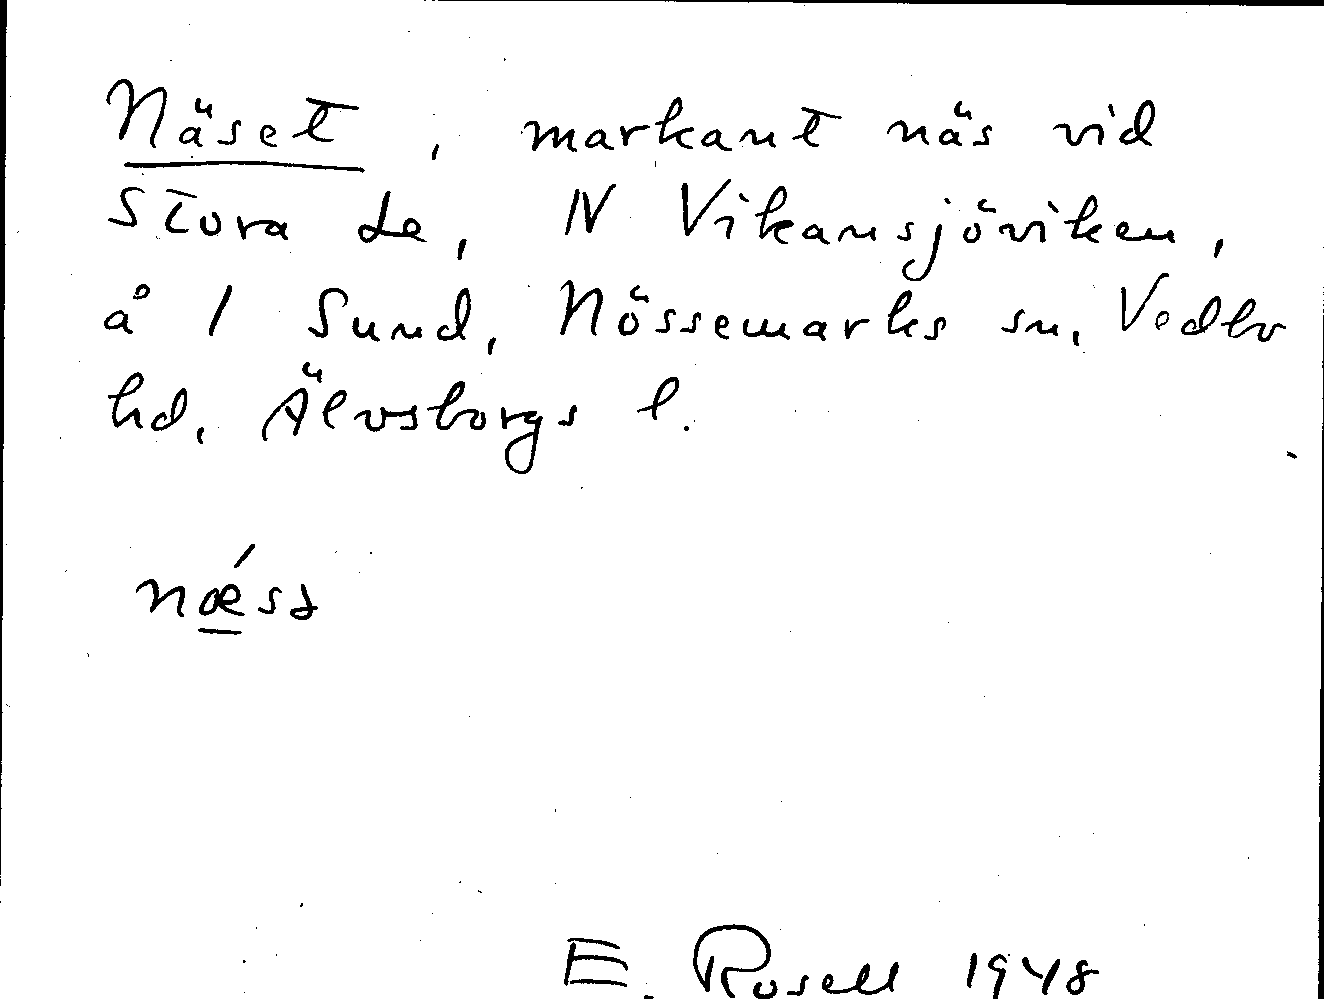 Näset, markant näs vid
Stora Le, N Vikansjöviken,
å 1 Sund, Nössemarks sn, Vedbo
hd, Älvsborgs l.
nǽsə
E. Rosell 1948